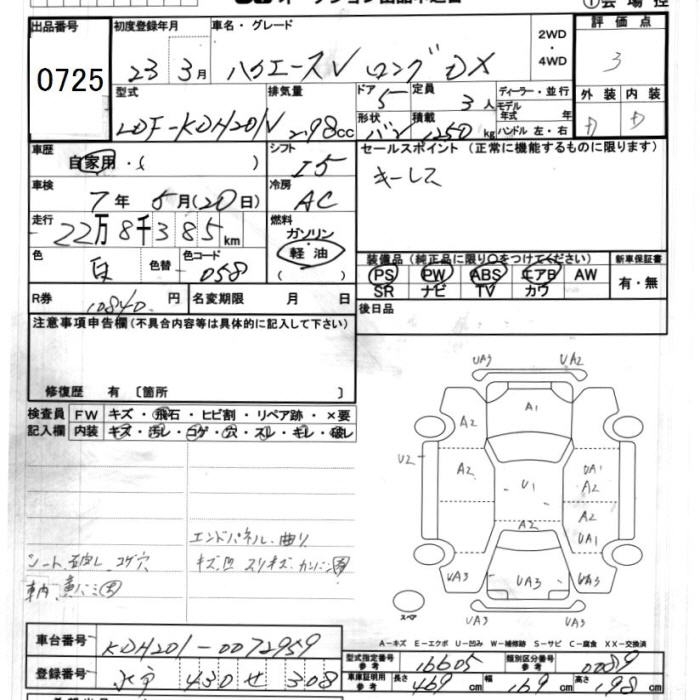 出品番号
0725
初度登録年月
23 3月
車名・グレード
ハイエースV ロング DX
2WD
・
4WD
評価点
3
型式
LDF-KDH201V
排気量
2.98cc
ドア
5
定員
3人
形状
バン
積載
1250kg
ディーラー・並行
モデル年式 年
ハンドル 左・右
外装
D
内装
D
車歴
自家用・( )
シフト
I5
セールスポイント(正常に機能するものに限ります)
キーレス
車検
7年 5月(20日)
冷房
AC
走行
22万8千385km
燃料
ガソリン
軽油
( )
色
白
色替
色コード
058
装備品(純正品に限り○をつけてください)
PS PW ABS エアB AW
SR ナビ TV カワ
新車保証書
有・無
R券
10840円
名変期限 月 日
後日品
注意事項申告欄(不具合内容等は具体的に記入して下さい)
修復歴 有 〔箇所 〕
検査員
記入欄
FW キズ・飛石・ヒビ割・リペア跡・×要
内装 キズ・汚レ・コゲ・穴・スレ・キレ・破レ
エンドパネル、曲り
シート、破レ コゲ穴
UA3 UA2
A1
A2
U2
A2
U1
UA1
A2
A2
A2
UA1
UA3
UA3
UA3
UA3 UA3
スペア
A-キズ E-エクボ U-凹み W-補修跡 S-サビ C-腐食 XX-交換済
車台番号
KDH201-0072959
登録番号
水戸 430 せ 308
型式指定番号
参考
16605
類別区分番号
参考
車庫証明用
参考
長さ
469cm
幅
169cm
高さ
198cm